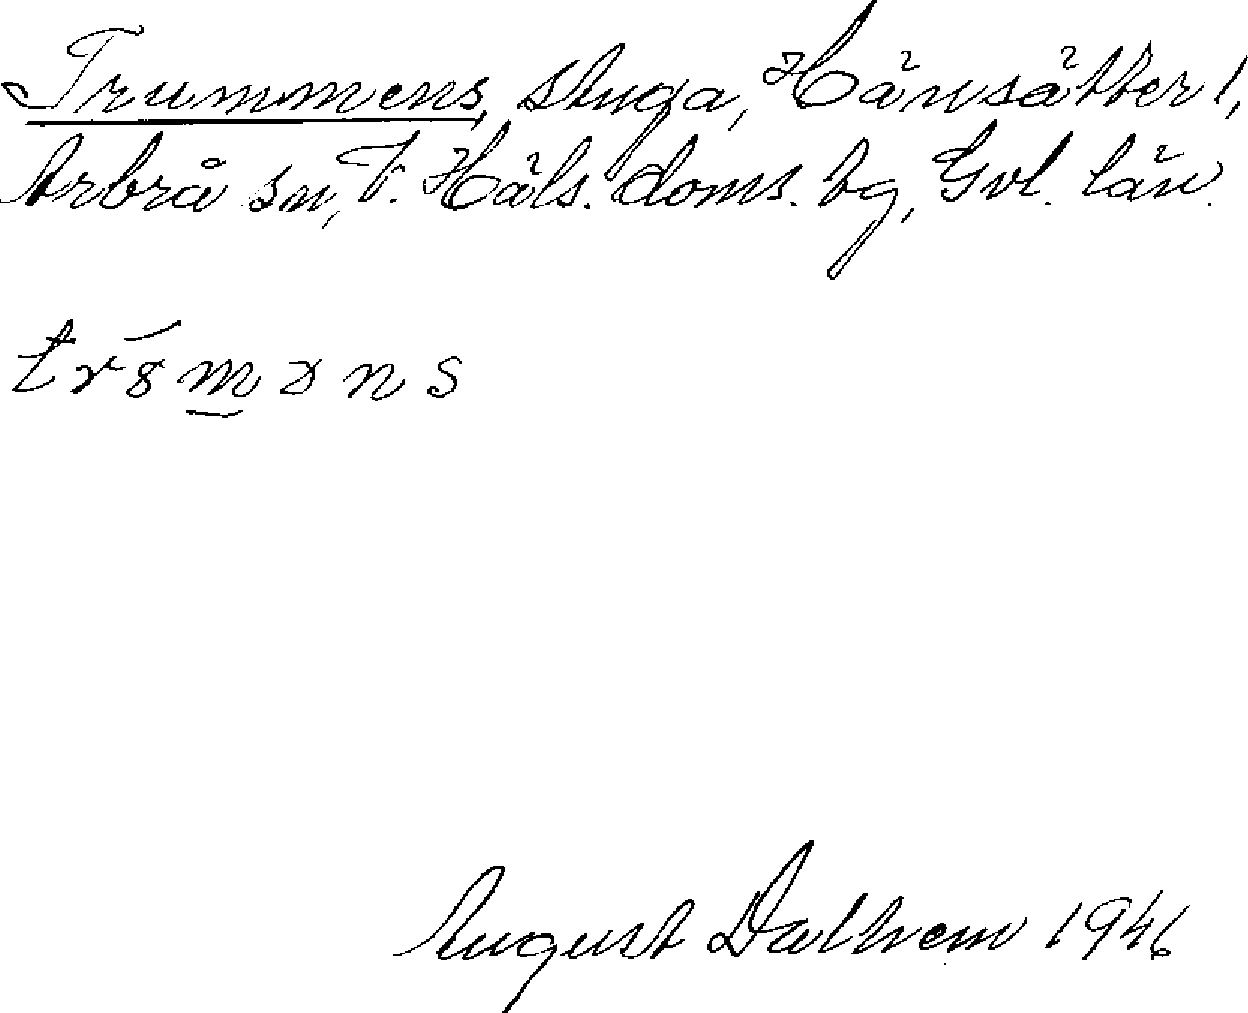 Trummens, stuga, Hänsätter 1,
Arbrå sn, V. Häls. doms. tg, Gvl. län.
tr m ə n s
August Dalhem 1946